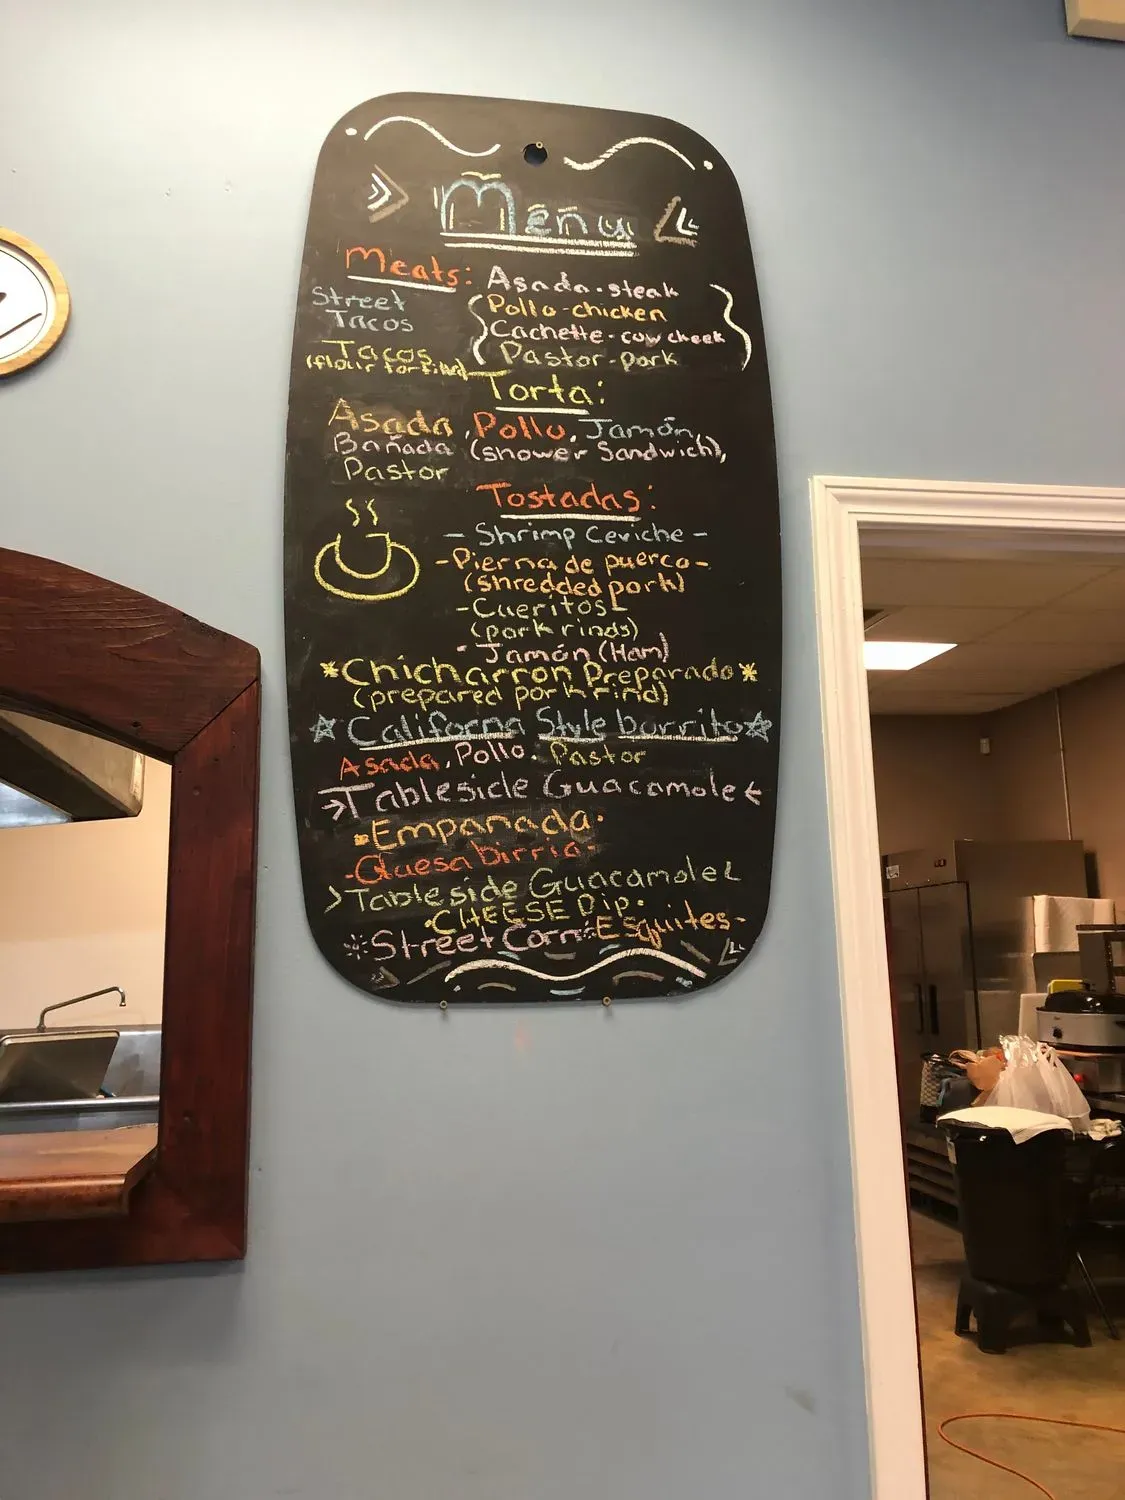 Menu
Meats: Asada-steak
Street Pollo-chicken
Tacos Cachette-cow cheek
Tacos Pastor-pork
(flour tortilla)
Torta:
Asada, Pollo, Jamón,
Bañada (shower Sandwich),
Pastor
Tostadas:
- Shrimp Ceviche -
- Pierna de puerco -
(shredded pork)
- Cueritos -
(pork rinds)
- Jamón (Ham)
*Chicharron Preparado*
(prepared pork rind)
California Style burrito
Asada, Pollo. Pastor
Tableside Guacamole
Empanada.
-Quesabirria-
Tableside Guacamole
.CHEESE Dip.
Street Corn-Esquites-